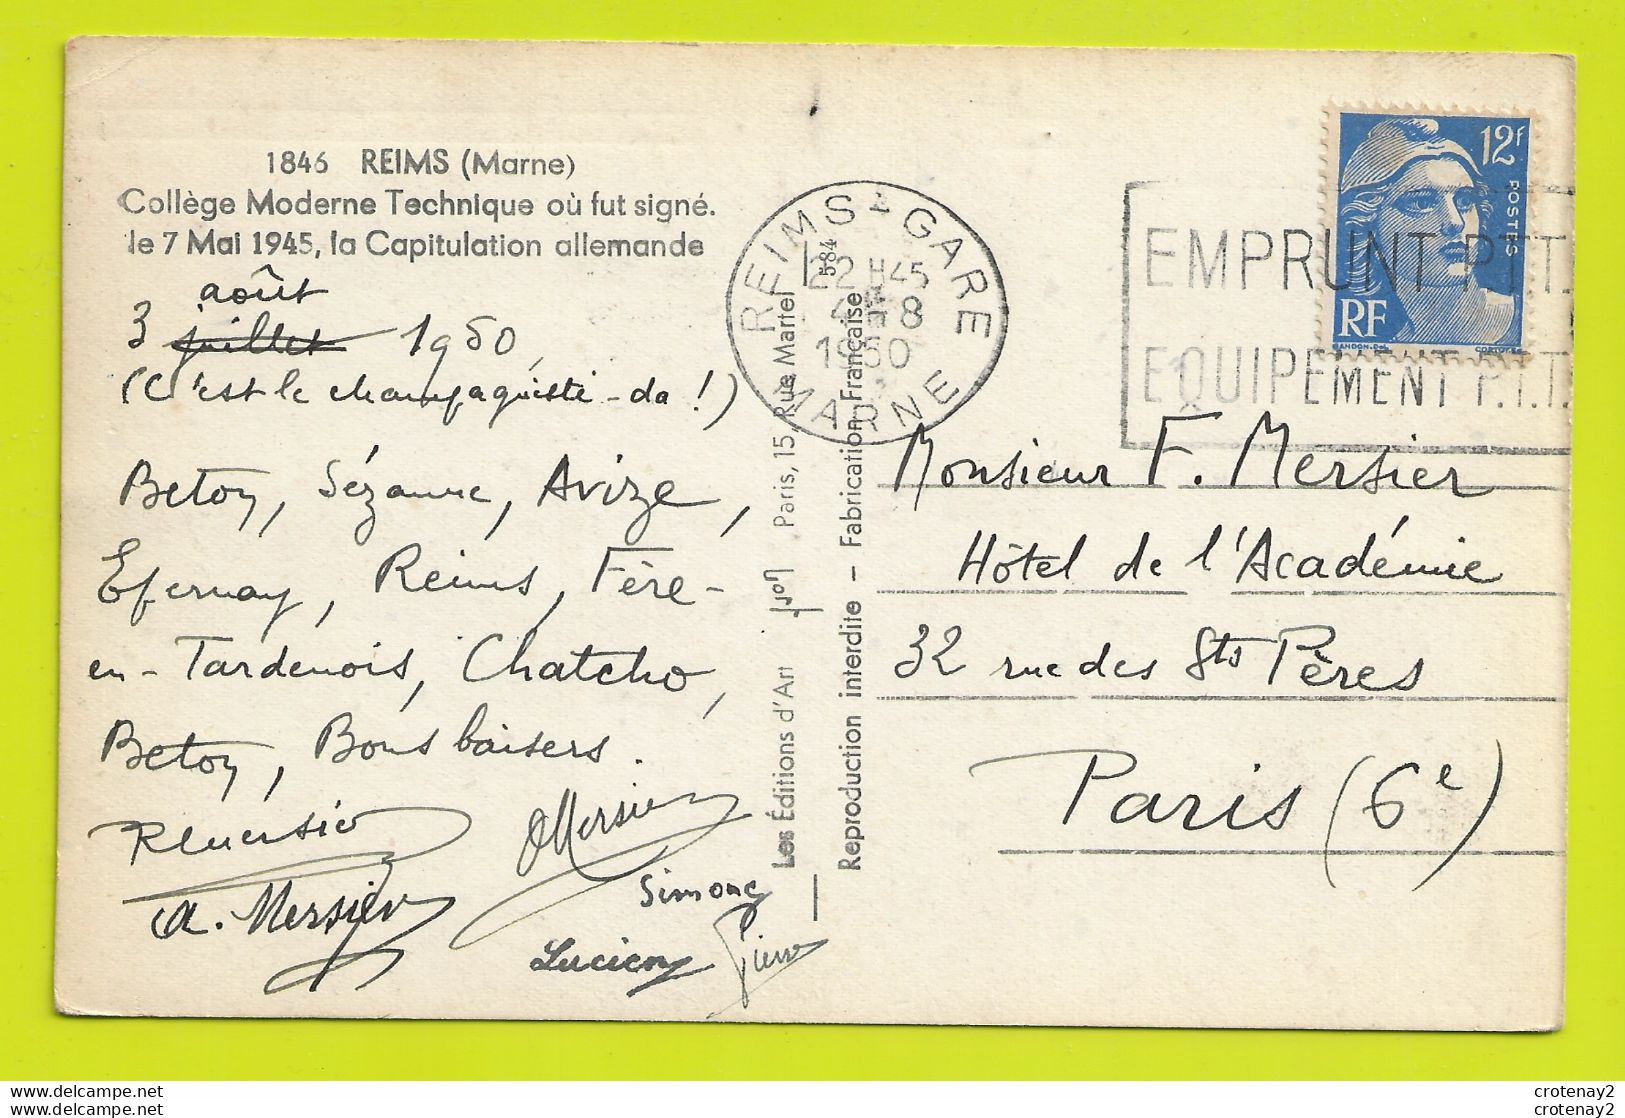 1846 REIMS (Marne)
Collège Moderne Technique où fut signé.
le 7 Mai 1945, la Capitulation allemande
août
3 juillet 1950,
(C'est le champagne
Betoy, Sézanne, Avize,
Epernay, Reims, Fère-
en-Tardenois, Chatcho,
Betoy, Bons baisers.
Mersier
A. Mersier
Simone
Lucien Pierre
Les Éditions d'Art Yvon Paris, 15, Rue Martel
Reproduction interdite - Fabrication Française
584
REIMS-GARE
22H45
4-8
1950
MARNE
EMPRUNT P.T.T.
EQUIPEMENT P.T.T.
12F
POSTES
RF
GANDON
Monsieur F. Mersier
Hôtel de l'Académie
32 rue des Sts Pères
Paris (6e)
crotenay2
crotenay2